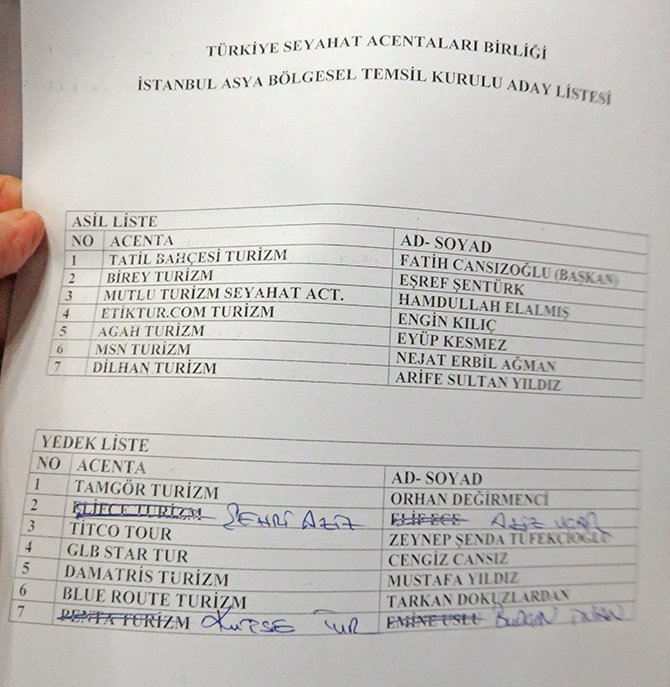 TÜRKİYE SEYAHAT ACENTALARI BİRLİĞİ
İSTANBUL ASYA BÖLGESEL TEMSİL KURULU ADAY LİSTESİ
ASİL LİSTE
NO ACENTA AD- SOYAD
1 TATİL BAHÇESİ TURİZM FATİH CANSIZOĞLU (BAŞKAN)
2 BİREY TURİZM EŞREF ŞENTÜRK
3 MUTLU TURİZM SEYAHAT ACT. HAMDULLAH ELALMIŞ
4 ETİKTUR.COM TURİZM ENGİN KILIÇ
5 AGAH TURİZM EYÜP KESMEZ
6 MSN TURİZM NEJAT ERBİL AĞMAN
7 DİLHAN TURİZM ARİFE SULTAN YILDIZ
YEDEK LİSTE
NO ACENTA AD- SOYAD
1 TAMGÖR TURİZM ORHAN DEĞİRMENCİ
2 ELİFECE TURİZM ŞEHRİ AZİZ ELİF ECE AZİZ UÇAR
3 TİTCO TOUR ZEYNEP ŞENDA TÜFEKÇİOĞLU
4 GLB STAR TUR CENGİZ CANSIZ
5 DAMATRİS TURİZM MUSTAFA YILDIZ
6 BLUE ROUTE TURİZM TARKAN DOKUZLARDAN
7 PENTA TURİZM TUR EMİNE USLU